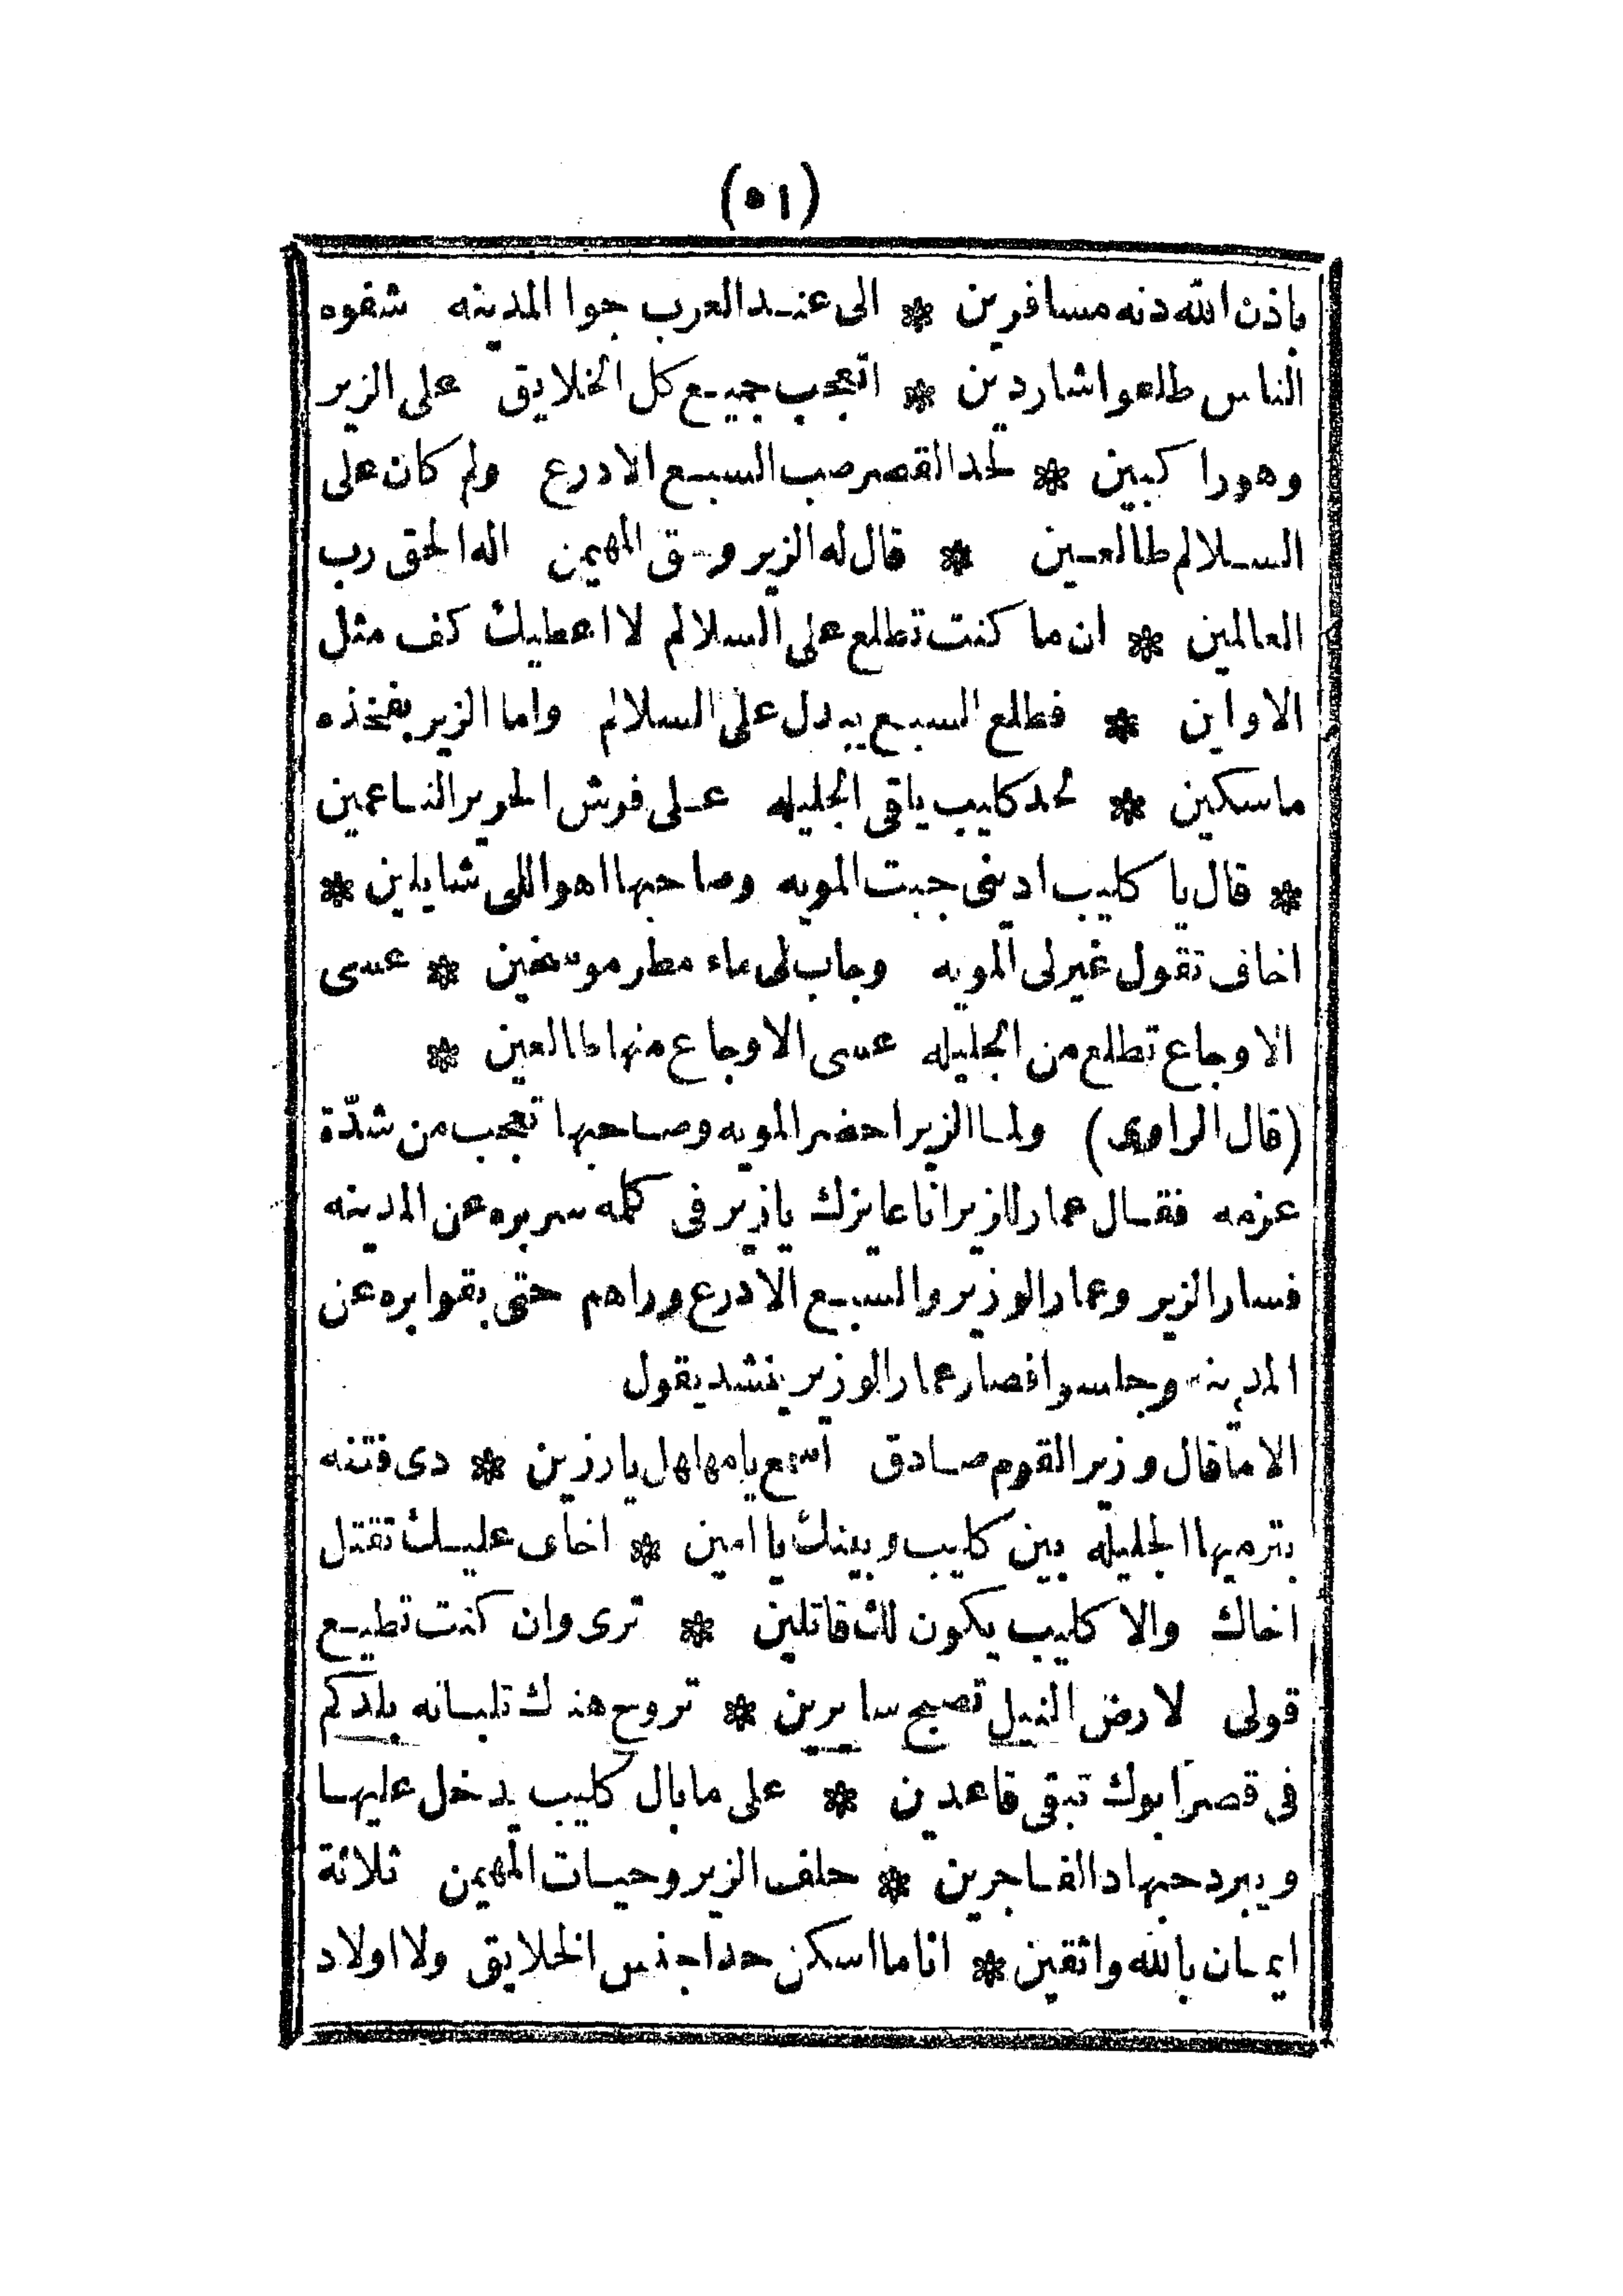 (٥١)
باذن الله دنه مسافرين * الى عند العرب جوا المدينه شفوه
الناس طلعوا شاردين * اتعجب جميع كل الخلايق على الزير
وهو راكبين * لحد القصر صب السبع الادرع ولم كان على
السلالم طالعين * قال له الزير وحق المهيمن اله الحق رب
العالمين * ان ما كنت تطلع على السلالم لا اعطيك كف مثل
الاولين * فطلع السبع يهدل على السلالم واما الزير بفخذه
ماسكين * لحد كليب ياقى الجليله على فوش الحرير الناعمين
* قال يا كليب ادينى جبت المويه وصاحبها اهو اللى شايلين *
اخاف تقول غير لى المويه وجاب لى ماء مطر موسخين * عسى
الاوجاع تطلع من الجليله عسى الاوجاع منها طالعين *
(قال الراوى) ولما الزير احضر المويه وصاحبها تعجب من شدّة
عزمه فقال عمار للزير انا عايزك يازير فى كلمه سر بره عن المدينه
فسار الزير وعمار الوزير والسبع الادرع وراهم حتى بقوا بره عن
المدينه وجلسوا فصار عمار الوزير ينشد يقول
الا ما قال وزير القوم صادق اسمع يا مهلهل يارزين * دى فتنه
بترميها الجليله بين كليب وبينك يا امين * اخاف عليك تقتل
اخاك والا كليب يكون لك قاتلين * ترى وان كنت تطيع
قولى لارض النيل تصبح سايرين * تروح هنك تلبانه بلدكم
فى قصر ابوك تبقى قاعدين * على ما بال كليب يدخل عليها
ويبرد حبها دالفاجرين * حلف الزير وحيات المهيمن ثلاثة
ايمان بالله واثقين * انا ما اسكن حدا جنس الخلايق ولا اولاد